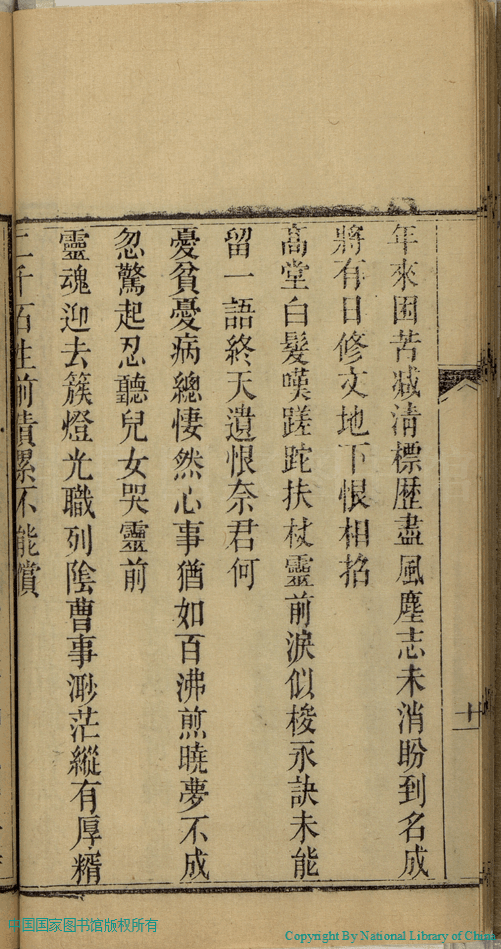 年來困苦減清標歷盡風塵志未消盼到名成
將有日修文地下恨相招
高堂白髮嘆蹉跎扶杖靈前淚似梭永訣未能
留一語終天遺恨奈君何
憂貧憂病總悽然心事猶如百沸煎曉夢不成
忽驚起忍聽兒女哭靈前
靈魂迎去簇燈光職列陰曹事渺茫縱有厚糈
二千石生前債累不能償
十一
中国国家图书馆版权所有
Copyright By National Library of China